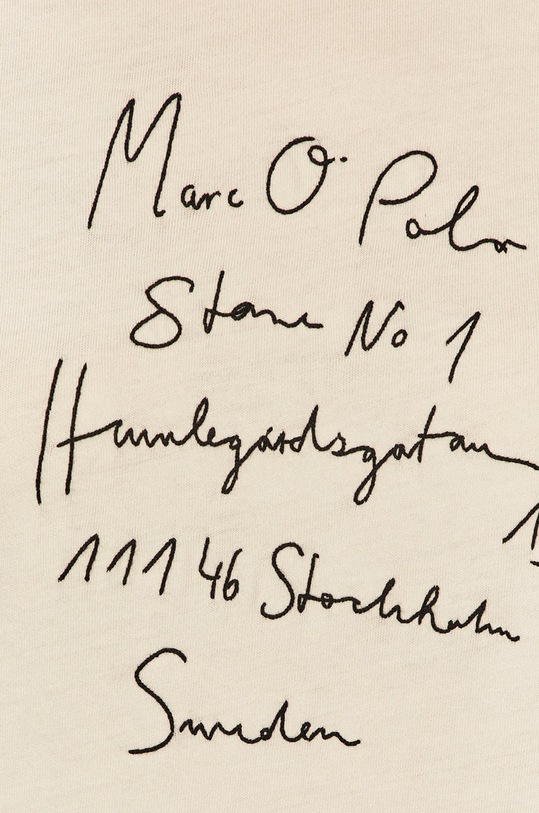 Marc O' Polo
Store No 1
Humlegårdsgatan
1
111 46 Stockholm
Sweden